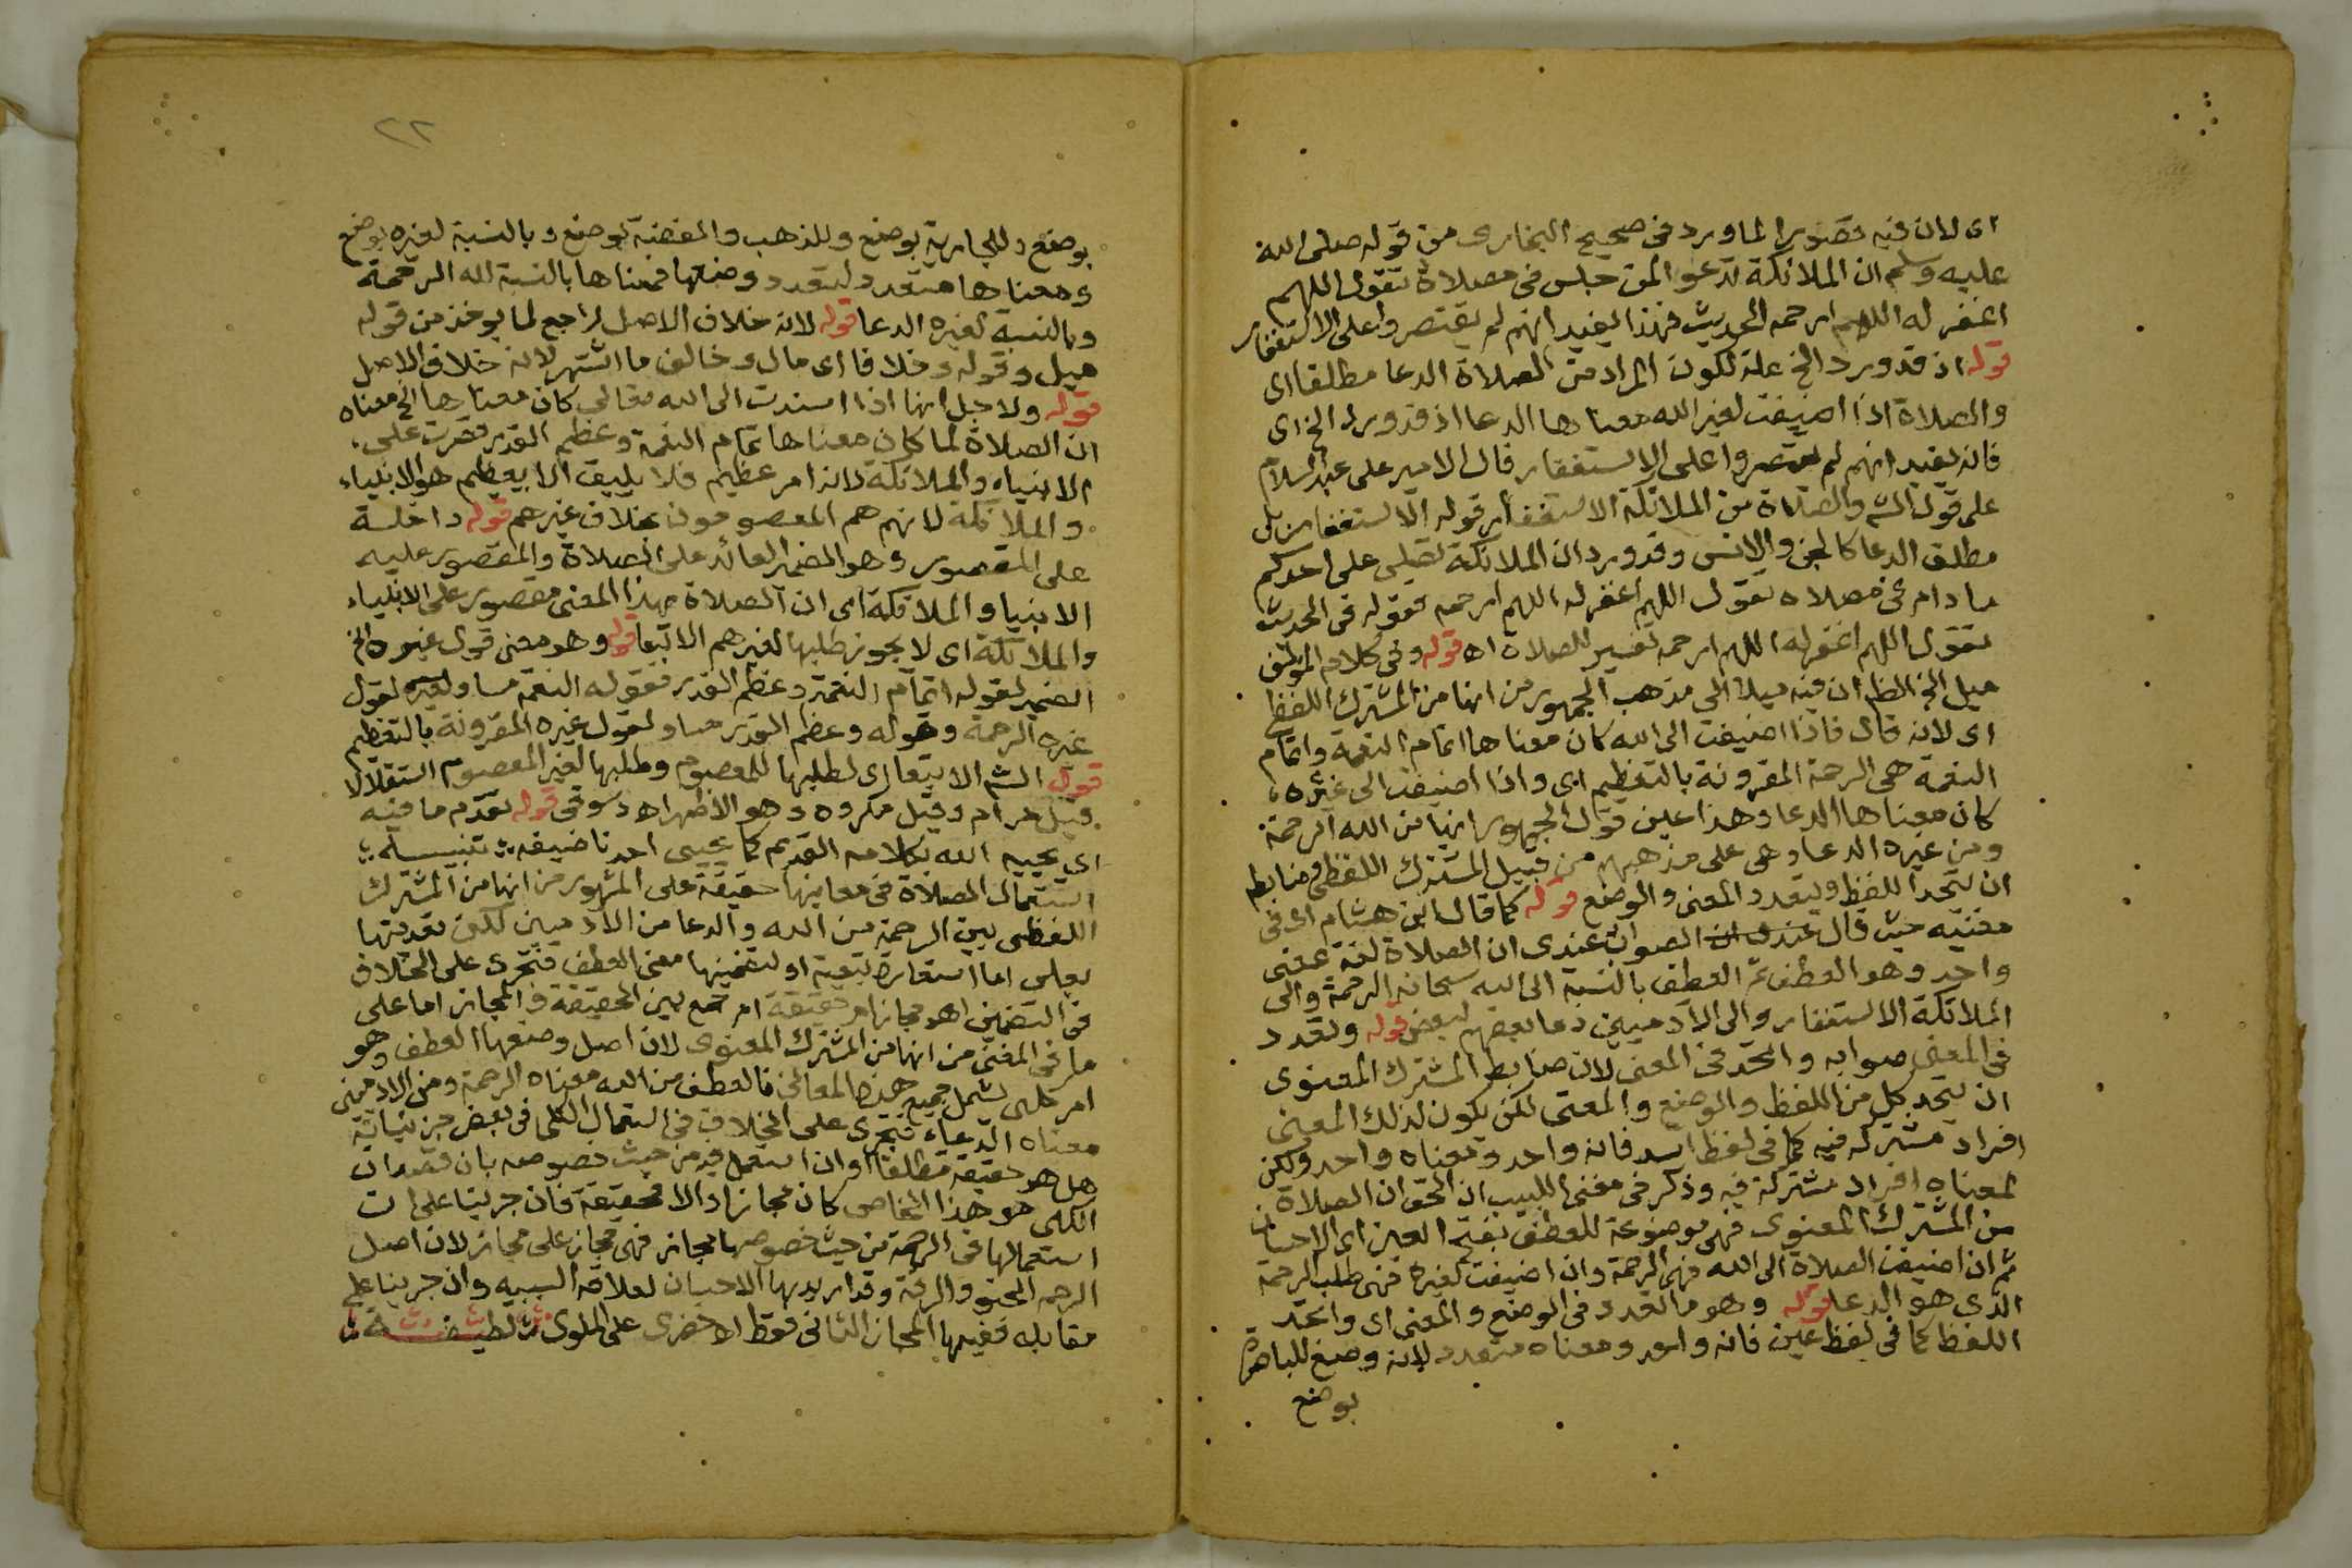 اى لان فيه قصورا لما ورد فى صحيح البخارى من قوله صلى الله
عليه وسلم ان الملائكة تدعو المن جلس فى مصلاة تقول اللهم
اغفر له اللهم ارحمه الحديث فهذا يفيد انهم لم يقتصروا على الاستغفار
قوله اذ قد ورد الخ علة لكون المراد من الصلاة الدعا مطلقا اى
والصلاة اذا اضيفت لغير الله معناها الدعا اذ قد ورد الخ اى
فانه يفيد انهم لم يقتصروا على الاستغفار قال الامير على عبد السلام
على قول الش والصلاة من الملائكة الاستغفار قوله الاستغفار بل
مطلق الدعا كالجن والانس وقد ورد ان الملائكة تصلى على احدكم
ما دام فى مصلاه تقول اللهم اغفر له اللهم ارحمه فقوله فى الحديث
تقول اللهم اغفر له اللهم ارحمه تفسير للصلاة اه قوله وفى كلام المؤلف
ميل الخ الظ ان فيه ميلا الى مذهب الجمهور من انها من المشترك اللفظى
اى لانه قال فاذا اضيفت الى الله كان معناها اتمام النعمة واتمام
النعمة هى الرحمة المقرونة بالتعظيم اى واذا اضيفت الى غيره
كان معناها الدعا وهذا عين قول الجمهور انها من الله الرحمة
ومن غيره الدعا وهى على مذهبهم من قبيل المشترك اللفظى وضابطه
ان يتحد اللفظ ويتعدد المعنى والوضع قوله كما قال ابن هشام اى فى
مغنيه حيث قال عندى ان الصواب عندى ان الصلاة لغة بمعنى
واحد وهو العطف ثم العطف بالنسبة الى الله سبحانه الرحمة والى
الملائكة الاستغفار والى الآدميين دعا بعضهم لبعض قوله وتعدد
فى المعنى صوابه واتحد فى المعنى لان ضابط المشترك المعنوى
ان يتحد كل من اللفظ والوضع والمعنى لكن يكون لذلك المعنى
افراد مشتركة فيه كما فى لفظ اسد فانه واحد ومعناه واحد ولكن
لمعناه افراد مشتركة فيه وذكر فى مغنى اللبيب ان الحق ان الصلاة
من المشترك المعنوى فهى موضوعة للعطف بفتح العين اى الاحسان
ثم ان اضيفت الصلاة الى الله فهى الرحمة وان اضيفت لغيره فهى طلب الرحمة
الذى هو الدعا قوله وهو ما تعدد فى الوضع والمعنى اى واتحد
اللفظ كما فى لفظ عين فانه واحد ومعناه متعدد لانه وضع للباصرة
بوضع
٢٢
بوضع وللجارية بوضع وللذهب والفضة بوضع وبالنسبة لغيره بوضع
ومعناها متعدد لتعدد وضعها فمعناها بالنسبة لله الرحمة
وبالنسبة لغيره الدعا قوله لانه خلاف الاصل راجع لما يوخذ من قوله
ميل وقوله وخلافا اى مال وخالف ما اشتهر لانه خلاف الاصل
قوله ولاجل انها اذا اسندت الى الله تعالى كان معناها الخ معناه
ان الصلاة لما كان معناها تمام النعمة وعظم القدر قصرت على
الانبياء والملائكة لانه امر عظيم فلا يليق الا بعظيم هو الانبياء
والملائكة لانهم هم المعصومون بخلاف غيرهم قوله داخلة
على المقصور وهو الضمير العائد على الصلاة والمقصور عليه
الانبيا والملائكة اى ان الصلاة بهذا المعنى مقصور على الانبياء
والملائكة اى لا يجوز طلبها لغيرهم الا تبعا قوله وهو معنى قول غيره الخ
الضمير لقوله اتمام النعمة وعظم القدر فقوله النعمة مساو لقول
غيره الرحمة وقوله وعظم القدر مساو لقول غيره المقرونة بالتعظيم
قول الش الا تبعا اى لطلبها للمعصوم وطلبها لغير المعصوم استقلالا
قيل حرام وقيل مكروه وهو الاظهر اه دسوقى قوله تقدم ما فيه
اى يحييه الله بكلامه القديم كما يحيى احدنا ضيفه تنبيه
استعمال الصلاة فى معانيها حقيقة على المشهور من انها من المشترك
اللفظى بين الرحمة من الله والدعا من الآدميين لكن تعديتها
بعلى اما استعارة تبعية او لتضمينها معنى العطف فتجرى على الخلاف
فى التضمين اهو مجاز ام حقيقة ام جمع بين الحقيقة والمجاز اما على
ما فى المغنى من انها من المشترك المعنوى لان اصل وضعها العطف وهو
امر كلى يشمل جميع هذه المعانى فالعطف من الله معناه الرحمة ومن الادمى
معناه الدعاء فتجرى على الخلاف فى استعمال الكلى فى بعض جزئياته
هل هو حقيقة مطلقا او ان استعمل فيه من حيث خصوصه بان قصد ان
الكلى هو هذا الخاص كان مجازا والا فحقيقة فان جرينا على ان
استعمالها فى الرحمة من حيث خصوصها مجاز فهى مجاز على مجاز لان اصل
الرحمه الحنو والرقة وقد اريد بها الاحسان لعلاقة السببيه وان جرينا على
مقابله ففيها المجاز الثانى فقط الاخضرى على الملوى لطيفة